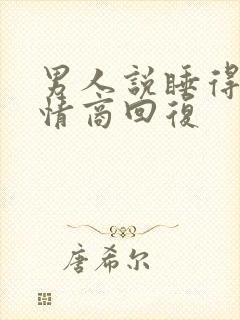 男人説睡得
情商回復
唐希尔